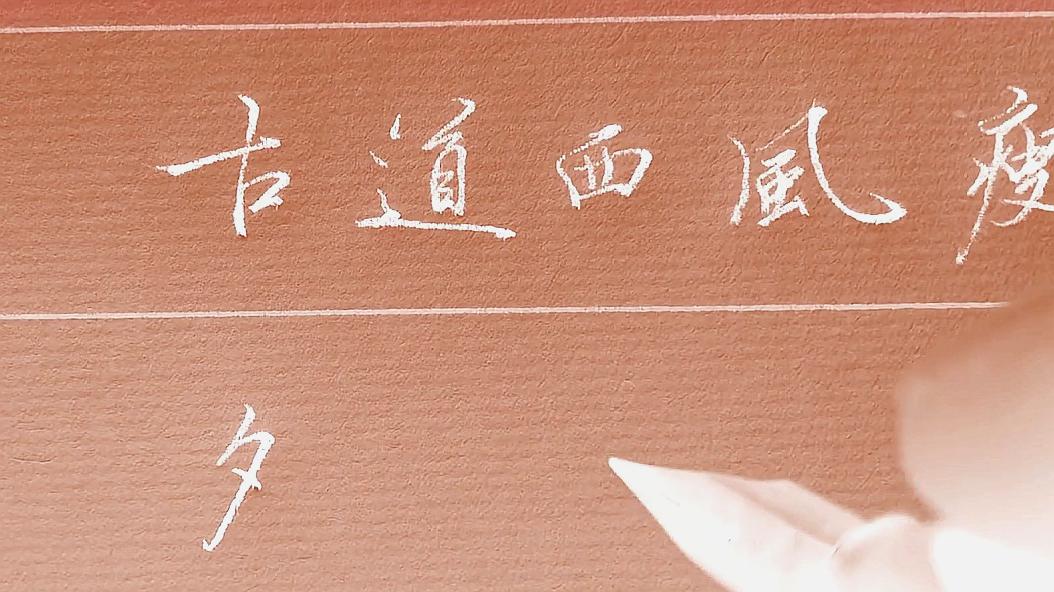 古道西風瘦
夕